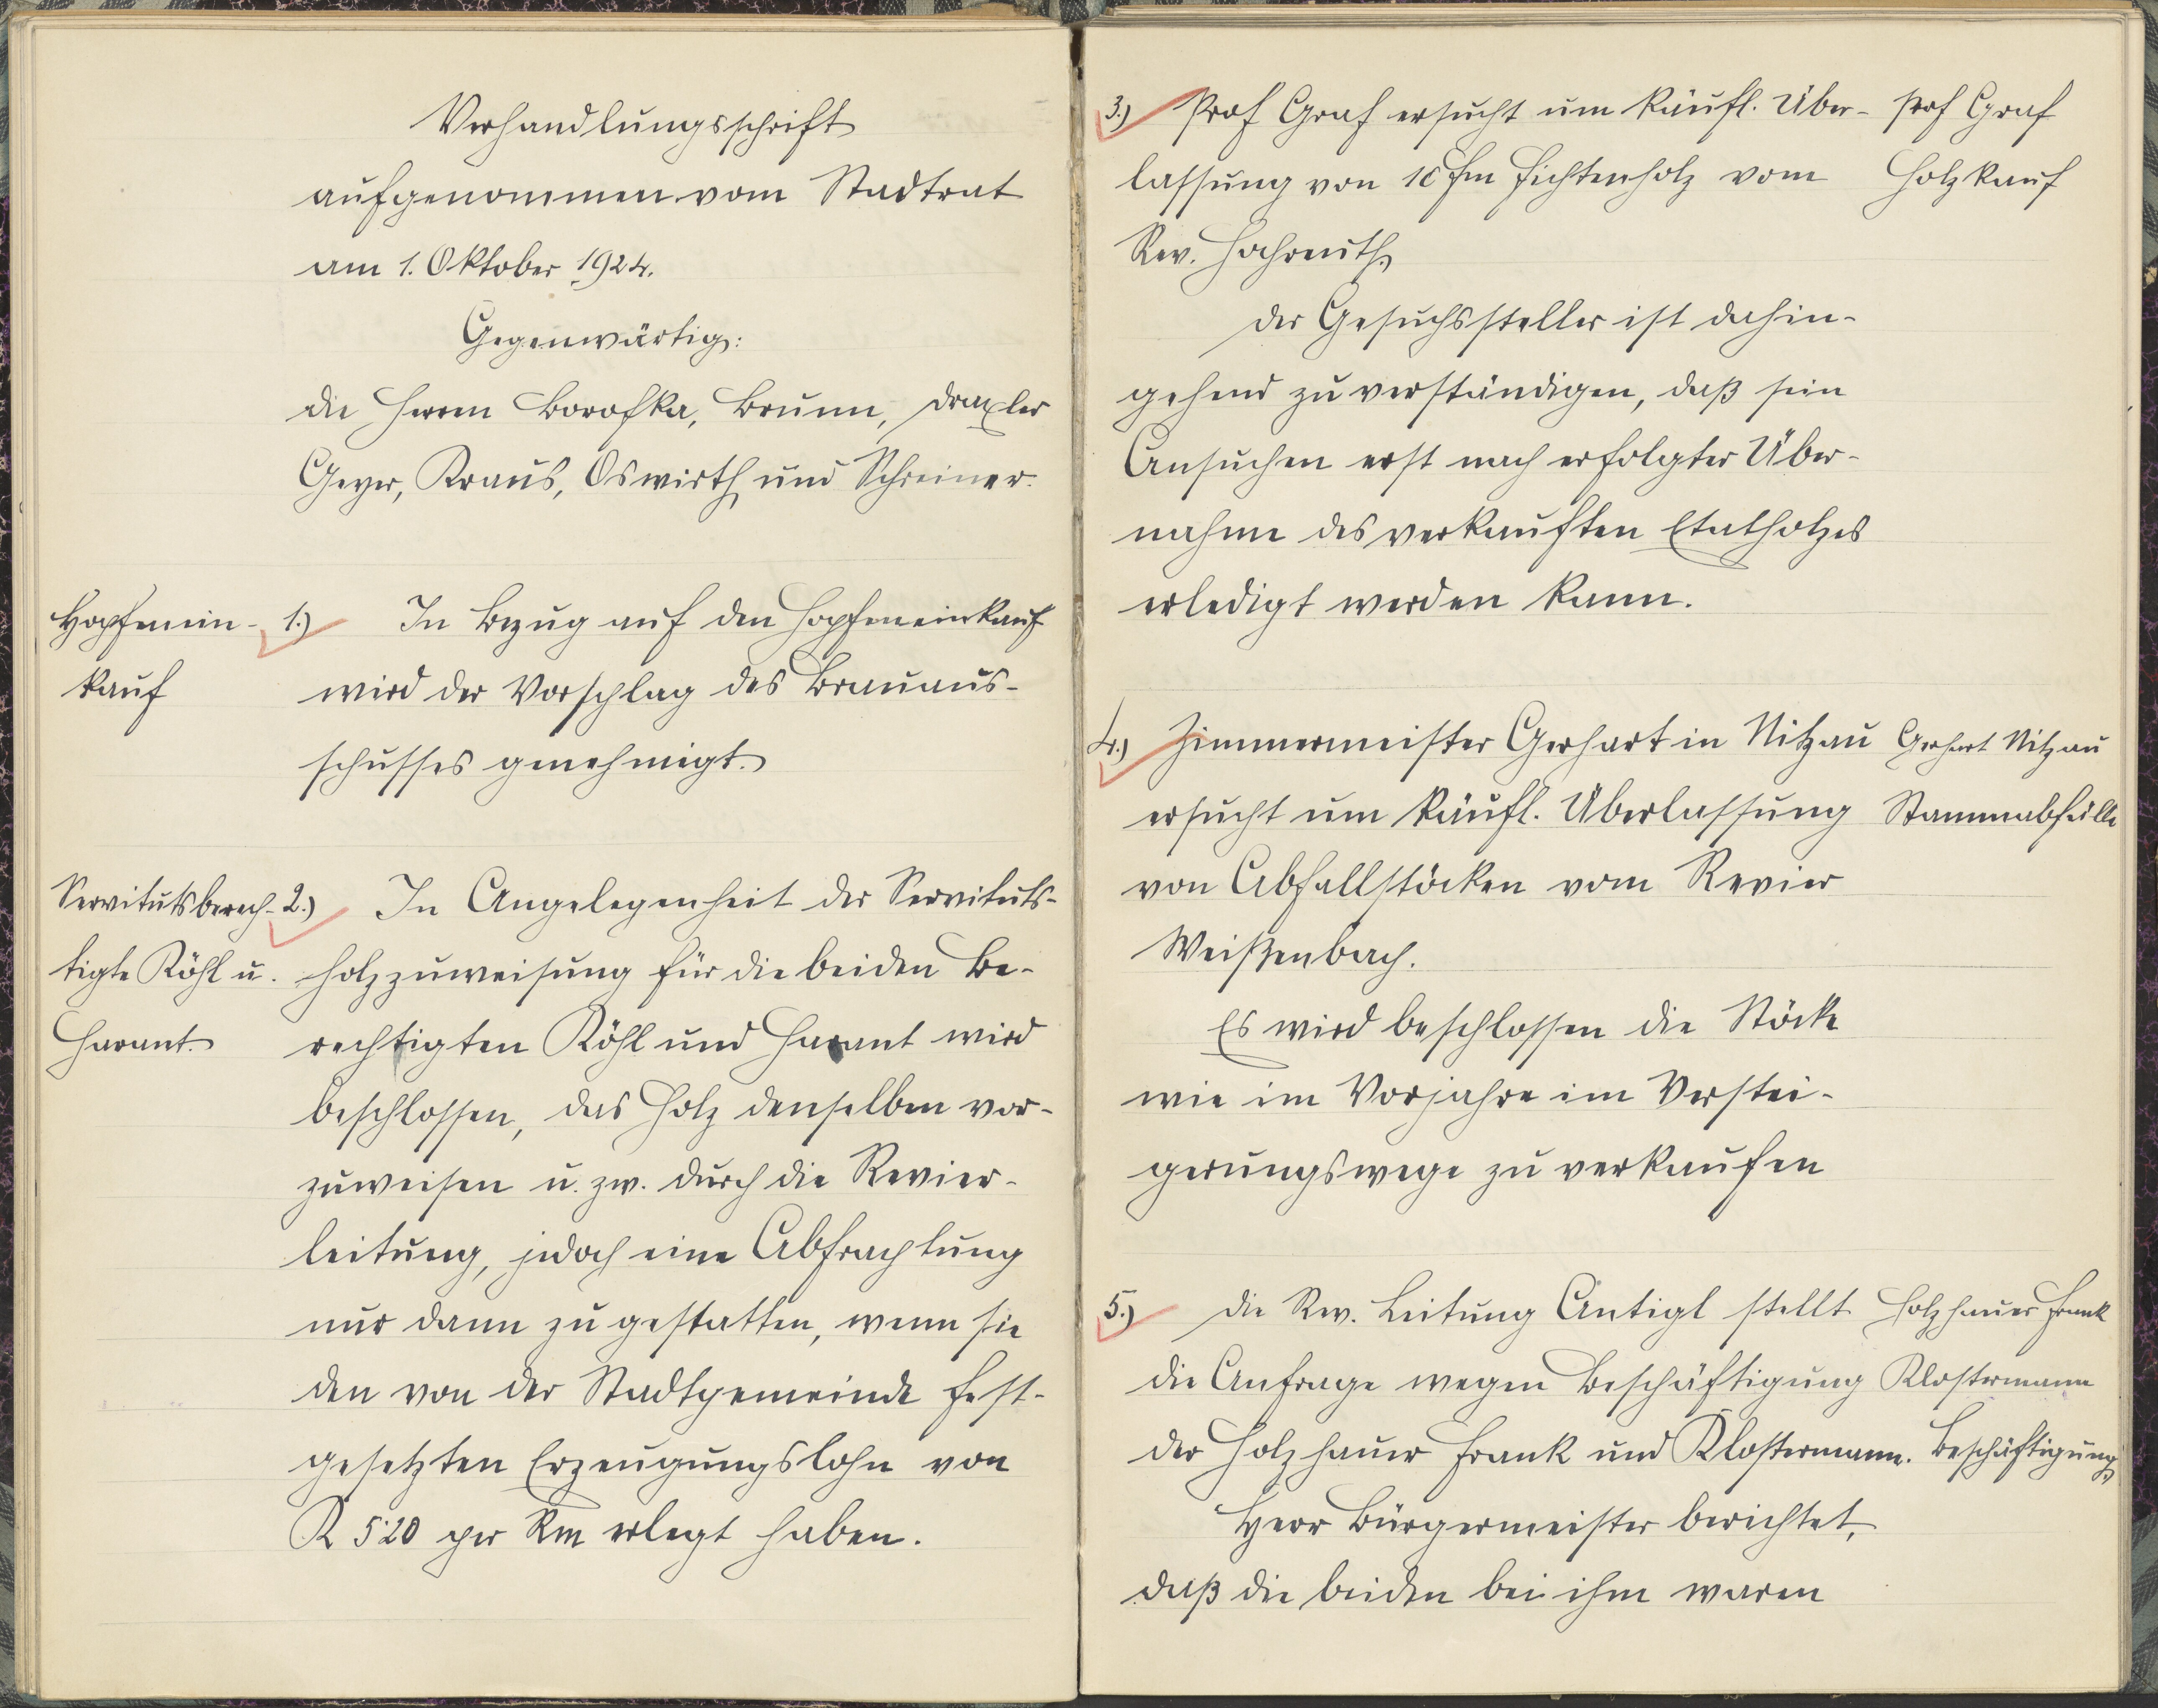 Verhandlungsschrift
aufgenommen vom Stadtrat
am 1. Oktober 1924.
Gegenwärtig:
die Herren Borofka, Brunn, Draxler
Geyer, Kraus, Oswirth und Schreiner.
Hopfenein-
kauf
1.) In Bezug auf den Hopfeneinkauf
wird der Vorschlag des Brauaus-
schusses genehmigt.
Servitutsberech-
tigte Röhl u.
Harant.
2.) In Angelegenheit der Servituts-
holzzuweisung für die beiden Be-
rechtigten Röhl und Harant wird
beschlossen, das Holz denselben vor-
zuweisen u. zw. durch die Revier-
leitung, jedoch eine Abfrachtung
nur dann zu gestatten, wenn sie
den von der Stadtgemeinde fest-
gesetzten Erzeugungslohn von
K 5·20 per Rm erlegt haben.
3.) Prof Graf ersucht um käufl. Über-
lassung von 10 fm Fichtenholz vom
Rev. Hochreuth.
Prof Graf
Holzkauf
Der Gesuchssteller ist dahin-
gehend zu verständigen, daß sein
Ansuchen erst nach erfolgter Über-
nahme des verkauften Etatholzes
erledigt werden kann.
4.) Zimmermeister Gerhart in Nitzau
ersucht um käufl. Überlassung
von Abfallstöcken vom Revier
Weißenbach.
Gerhart Nitzau
Stammabfälle
Es wird beschlossen die Stöcke
wie im Vorjahre im Verstei-
gerungswege zu verkaufen
5.) Die Rev. Leitung Antigl stellt
die Anfrage wegen Beschäftigung
der Holzhauer Frank und Klostermann.
Holzhauer Frank
Klostermann
Beschäftigung
Herr Bürgermeister berichtet,
daß die beiden bei ihm waren